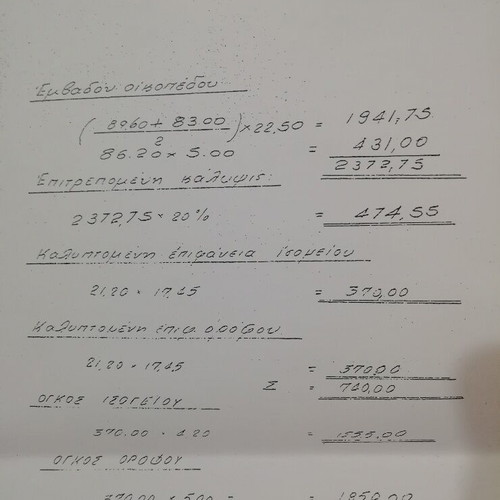 Ἐμβαδόν οἰκοπέδου
( 89.60 + 83.00 / 2 ) × 22,50 = 1941,75
86.20 × 5.00 = 431,00
2372,75
Ἐπιτρεπομένη κάλυψις:
2372,75 × 20% = 474,55
Καλυπτομένη ἐπιφάνεια ἰσογείου
21,20 × 17,45 = 370,00
Καλυπτομένη ἐπιφ. ὀρόφου
21,20 × 17,45 = 370,00
Σ = 740,00
ΟΓΚΟΣ ΙΣΟΓΕΙΟΥ
370.00 × 4.20 = 1555,00
ΟΓΚΟΣ ΟΡΟΦΟΥ
370.00 × 5.00 = 1850,00